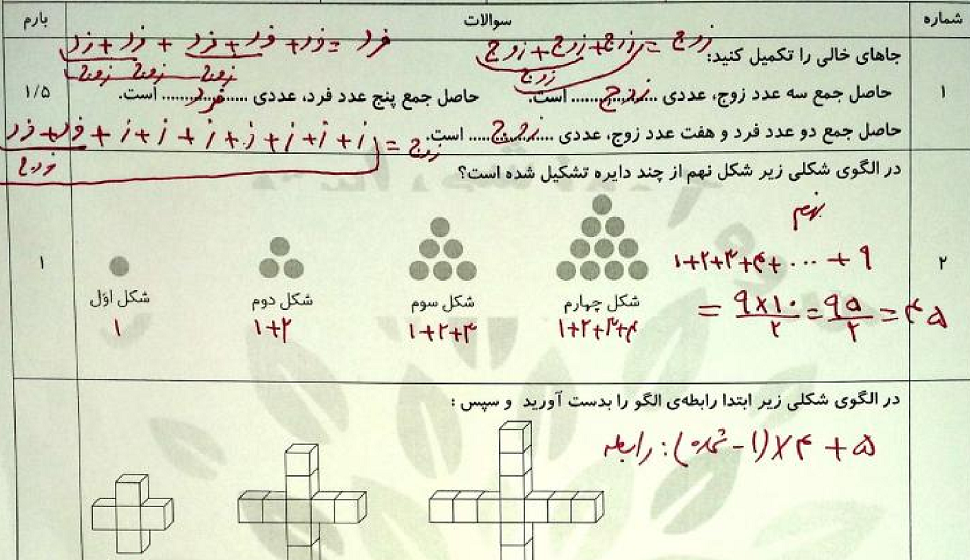 شماره سوالات بارم
زوج + زوج + زوج = زوج
فرد + فرد + فرد + فرد + فرد = فرد
جاهای خالی را تکمیل کنید:
زوج
زوج زوج زوج
۱ حاصل جمع سه عدد زوج، عددی ....زوج.... است. حاصل جمع پنج عدد فرد، عددی ....فرد.... است. ۱/۵
حاصل جمع دو عدد فرد و هفت عدد زوج، عددی ....زوج.... است.
فرد + فرد + ز + ز + ز + ز + ز + ز + ز = زوج
زوج
در الگوی شکلی زیر شکل نهم از چند دایره تشکیل شده است؟
۲ ۱
نهم
۱+۲+۳+۴+ ... + ۹
= ۹×۱۰/۲ = ۹۵/۲ = ۴۵
شکل چهارم شکل سوم شکل دوم شکل اوّل
۱+۲+۳+۴ ۱+۲+۳ ۱+۲ ۱
در الگوی شکلی زیر ابتدا رابطه‌ی الگو را بدست آورید و سپس :
رابطه: (شماره - ۱) × ۴ + ۵